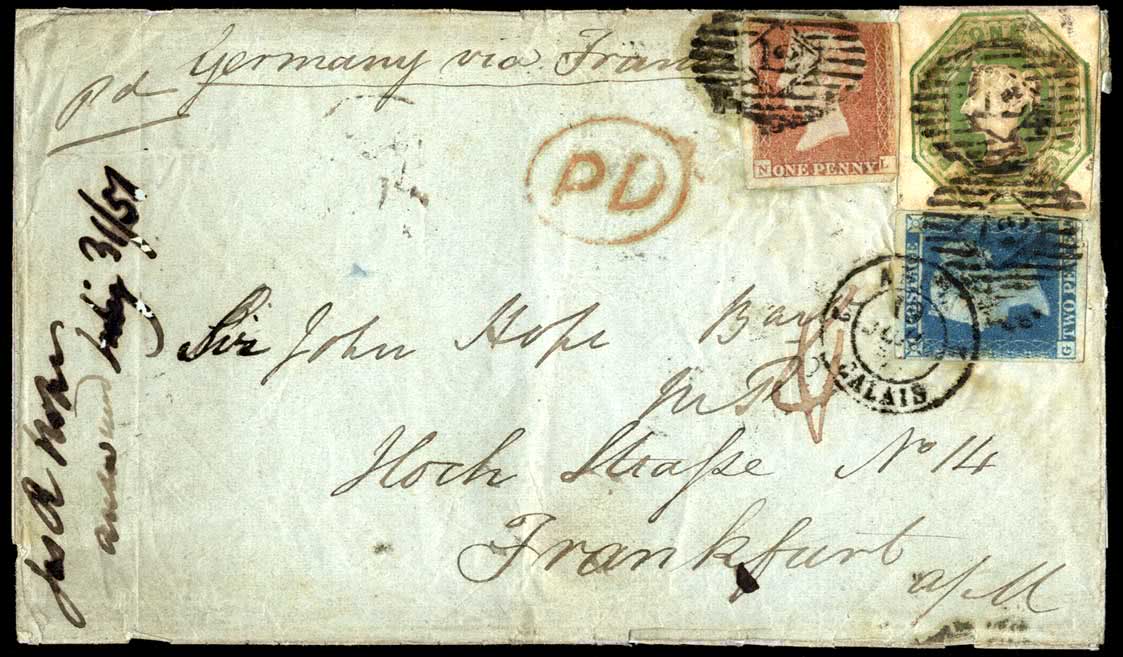 pd
Germany via Fran
PD
NONE PENNY L
ONE
POSTAGE
G TWO PENCE
CALAIS
Sir John Hope Bar
Hoch Straße No 14
Frankfurt
a/M
answered July 31/51